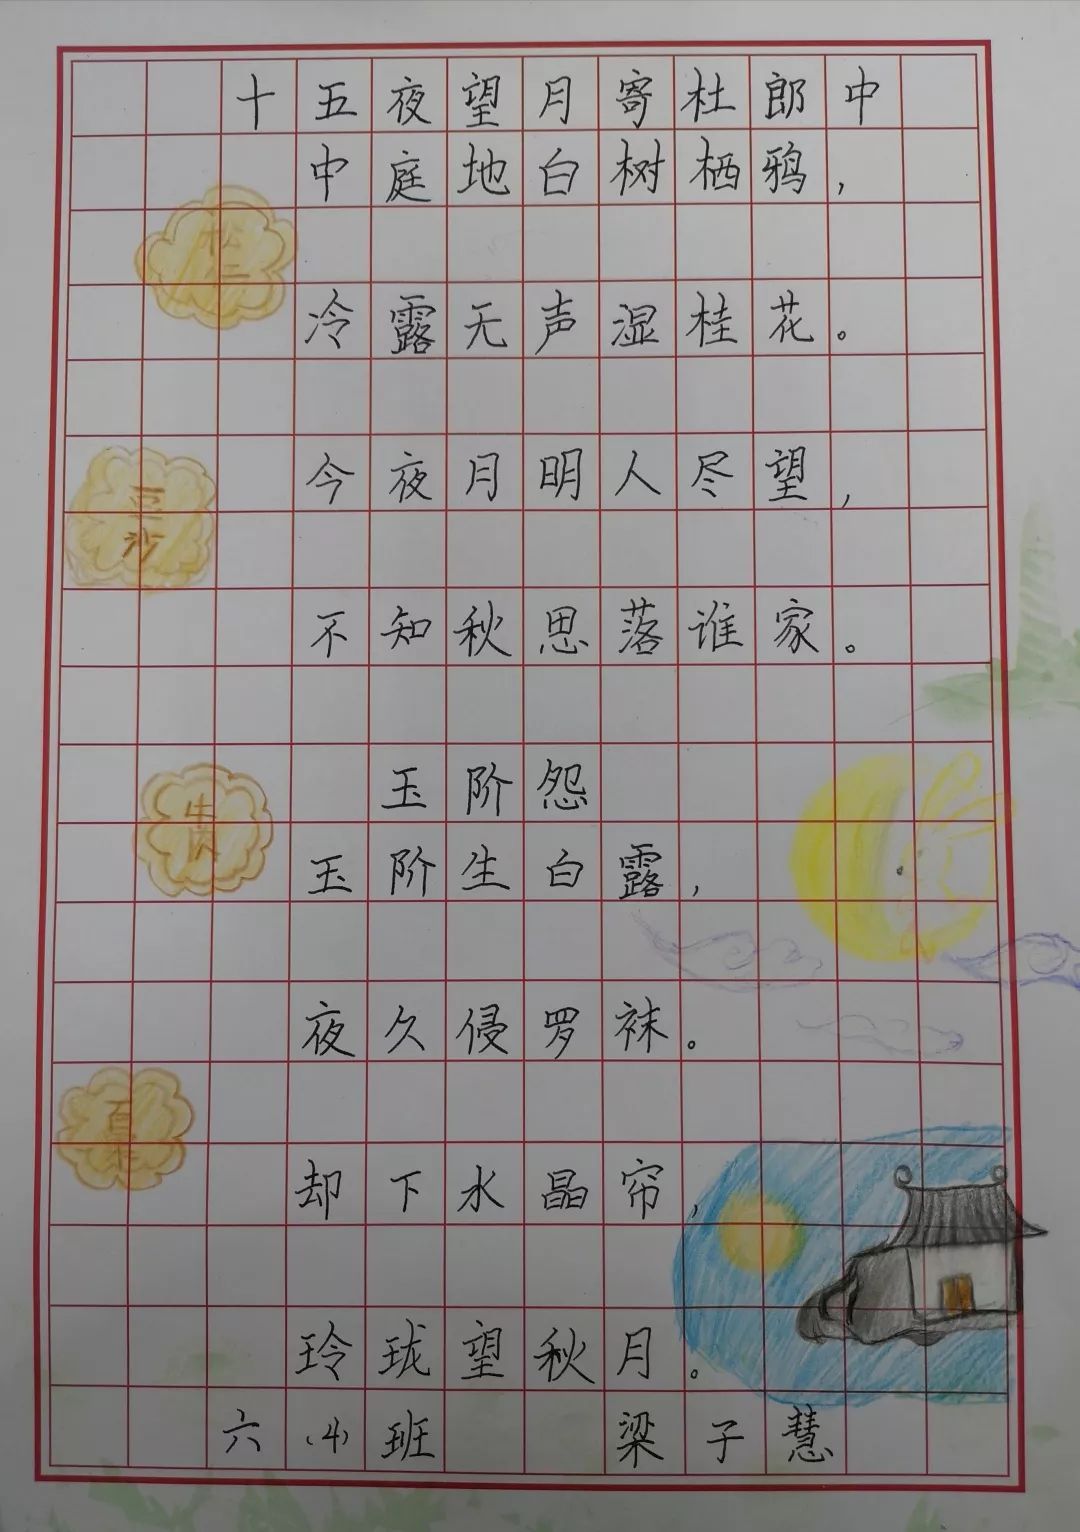 十五夜望月寄杜郎中
中庭地白树栖鸦，
松仁
冷露无声湿桂花。
今夜月明人尽望，
豆沙
不知秋思落谁家。
玉阶怨
玉阶生白露，
牛肉
夜久侵罗袜。
百果
却下水晶帘，
玲珑望秋月。
六（4）班 梁子慧